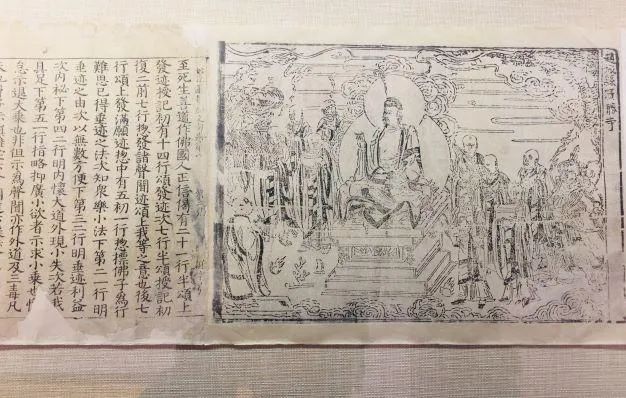 趙城縣廣勝寺
至死生善道作佛國土正信偈有二十一行半頌上
發迹授記初有十四行頌發迹次七行半頌授記初
復二前七行揔發諸聲聞迹頌上我等之言也後七
行頌上發滿願迹揔中有五初一行揔標佛子為行
難思已得垂迹之法大知衆樂小法下第二一行明
垂迹之由次以無數方便下第三三行明垂迹利益
次内祕下第四二行明内懷大道外現小失次若我
具足下第五一行皆略抑廣小欲者示求小乘
怠示退大乗也非但示為聲聞亦作外道及三毒凡